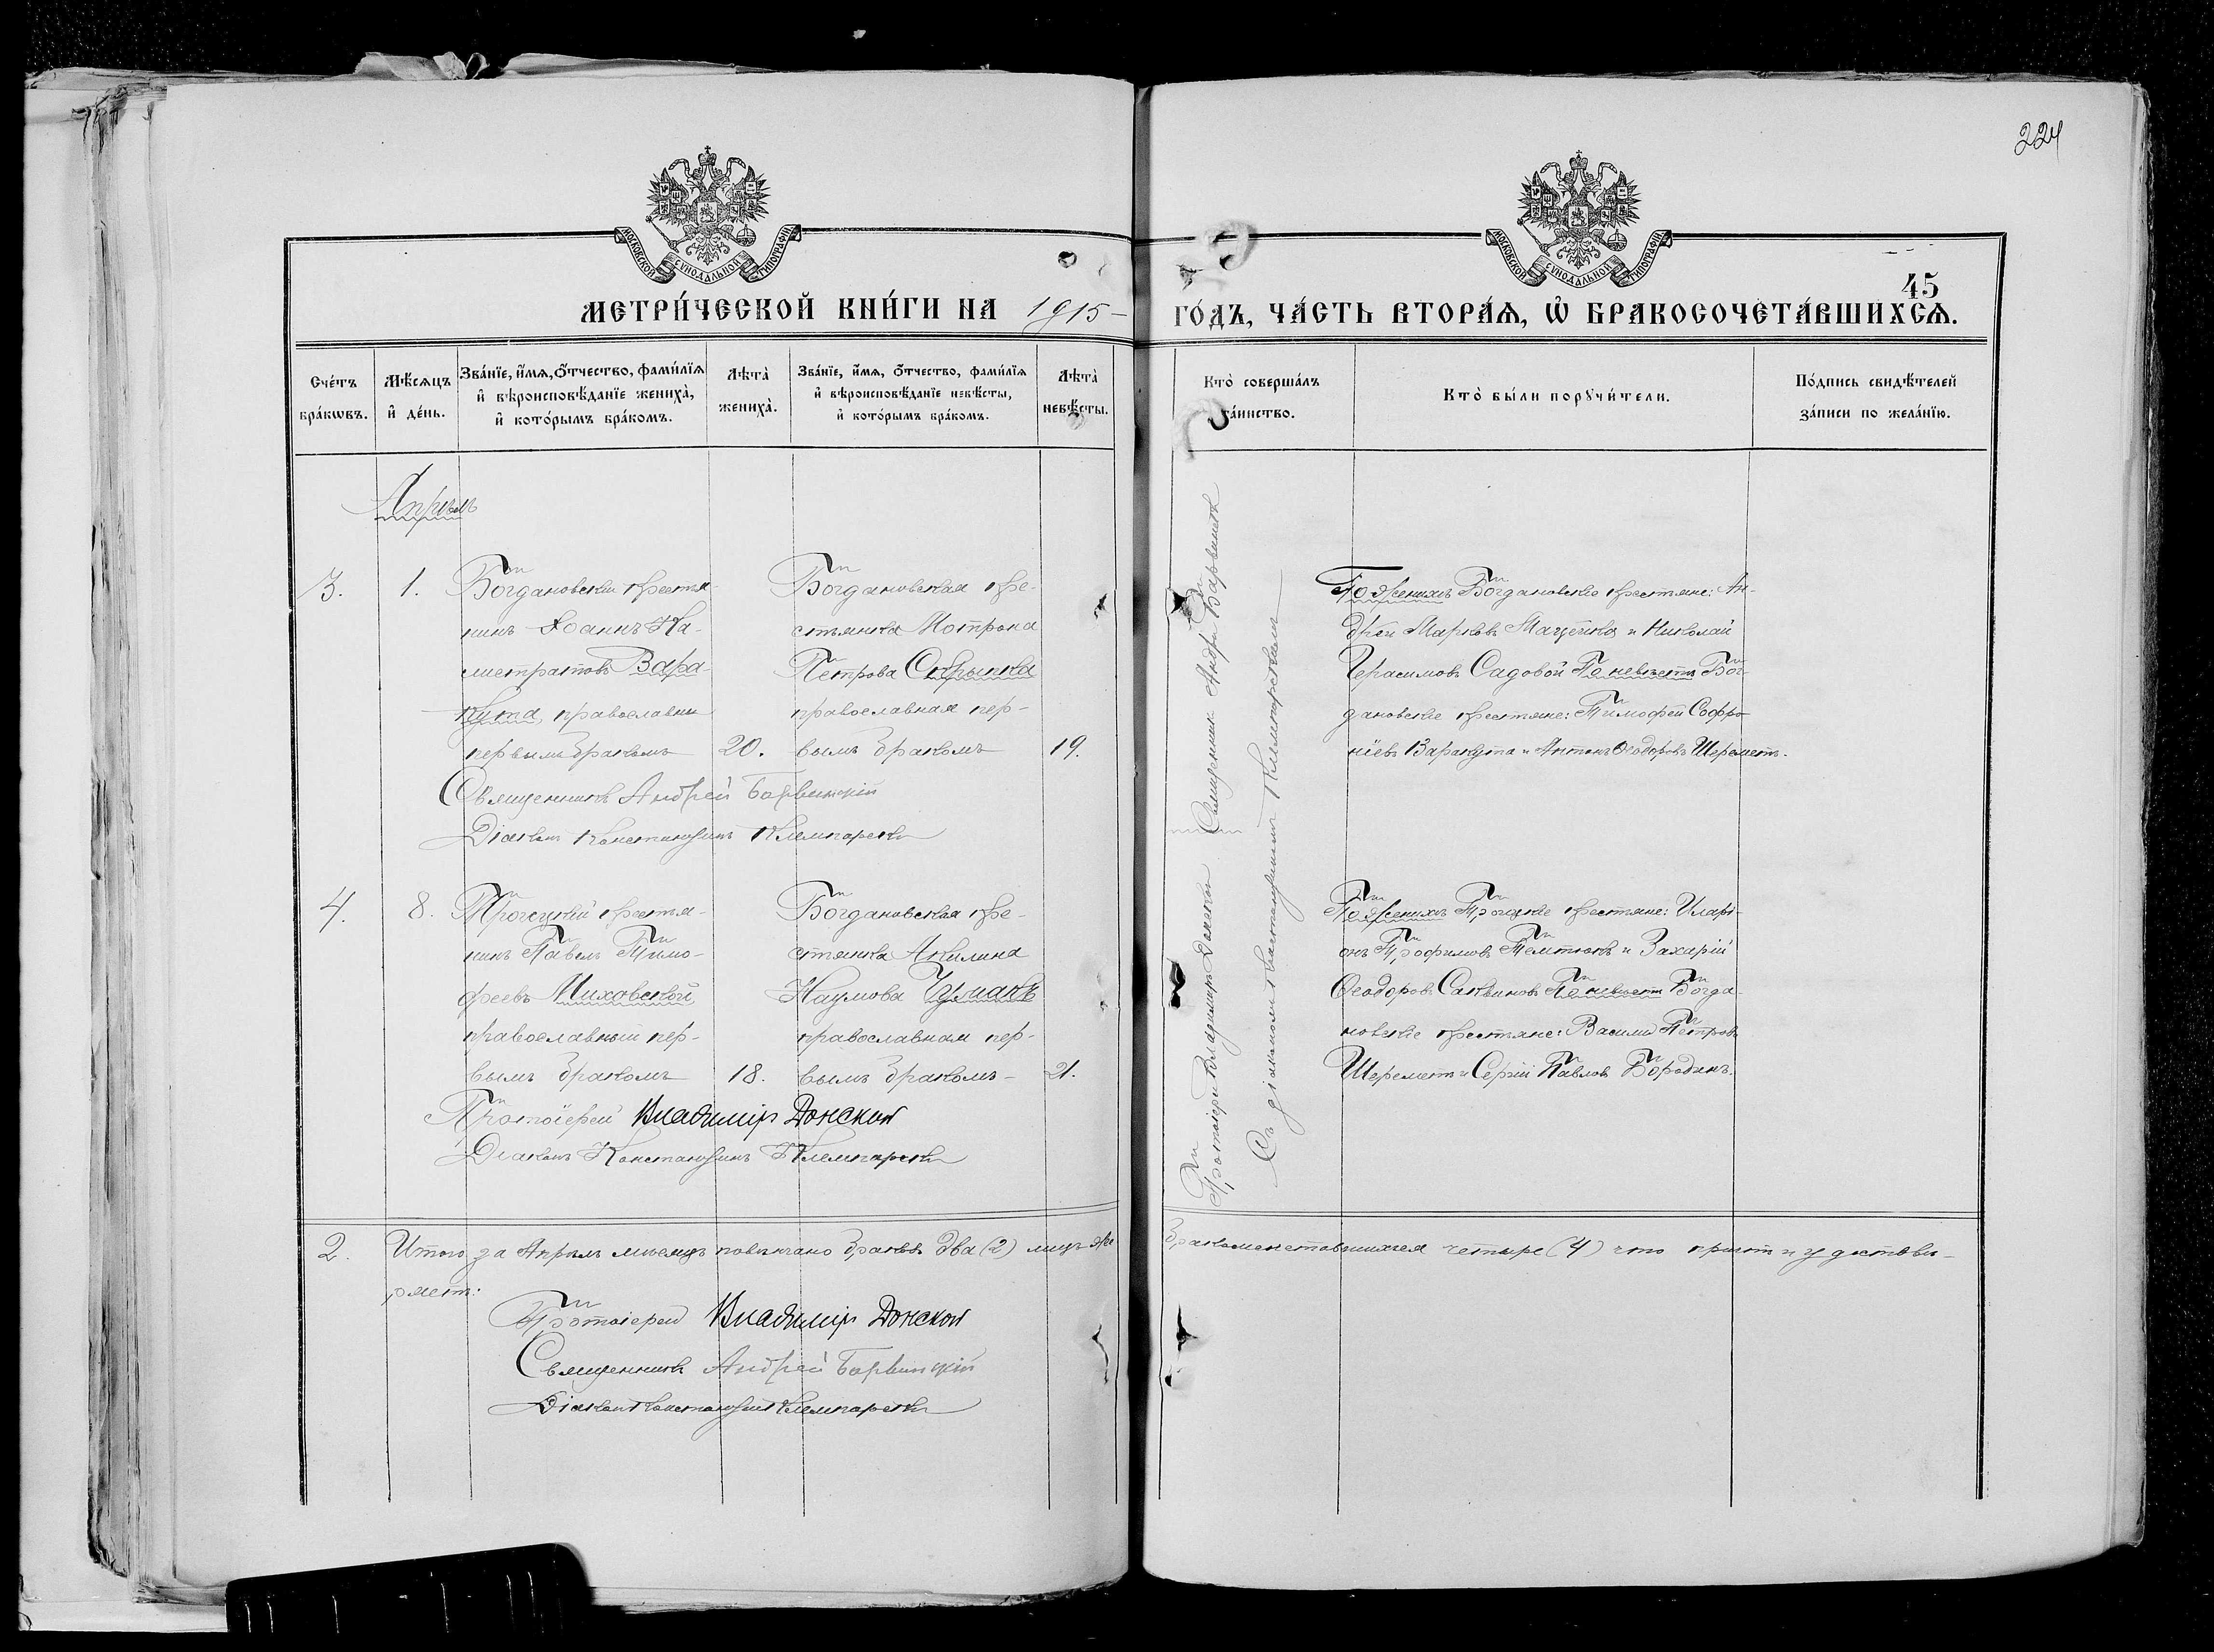 224
МОСКОВСКОЙ СѴНОДАЛЬНОЙ ТИПОГРАФІИ
МОСКОВСКОЙ СѴНОДАЛЬНОЙ ТИПОГРАФІИ
45
МЕТРИ́ЧЕСКОЙ КНИ́ГИ НА 1915 ГО́ДЪ, ЧА́СТЬ ВТОРА́Ѧ, Ѽ БРАКОСОЧЕТА́ВШИХСѦ.
Сче́тъ бра́кѡвъ.
Мѣ́сяцъ и҆ де́нь.
Зва́нїе, и҆́мѧ, ѻ҆́тчество, фами́лїѧ
и҆ вѣроисповѣ́данїе жениха̀,
и҆ кото́рымъ бра́комъ.
Лѣта̀ жениха̀.
Зва́нїе, и҆́мѧ, ѻ҆́тчество, фами́лїѧ
и҆ вѣроисповѣ́данїе невѣ́сты,
и҆ кото́рымъ бра́комъ.
Лѣта̀ невѣ́сты.
Кто̀ соверша́лъ та́инство.
Кто̀ бы́ли порꙋчи́тели.
По́дпись свидѣ́телей
за́писи по жела́нїю.
Апрѣль
3.
1.
Богдановскій крестья-
нинъ Іоаннъ Ка-
листратовъ Вара-
кута, православный
первымъ бракомъ
20.
Богдановская кре-
стьянка Мотрона
Петрова Скрыпка
православная пер-
вымъ бракомъ
19.
Священникъ Андрей Барвинскій
Діаконъ Константинъ
По женихѣ Богдановскіе крестьяне: Ан-
дрей Марковъ и Николай
Герасимовъ Садовой По невѣстѣ Бог-
дановскіе крестьяне: Тимофей Софро-
ніевъ Варакута и Антонъ Ѳеодоровъ Шереметъ.
4.
8.
Троицкій крестья-
нинъ Павелъ Тимо-
феевъ Миховской
православный пер-
вымъ бракомъ
18.
Богдановская кре-
стьянка Акилина
Наумова Чумакъ
православная пер-
вымъ бракомъ
21.
Протоіерей Владиміръ Донской
Діаконъ Константинъ
По женихѣ Троицкіе крестьяне: Иларі-
онъ Трофимовъ и Захарій
Ѳеодоровъ По невѣстѣ Богда-
новскіе крестьяне: Василій Петровъ
Шереметъ и Сергій Павловъ Бородинъ.
Протоіерей Владиміръ Донской Священникъ Андрей Барвинскій
Съ діакономъ Константиномъ
2.
Итого за Апрѣль мѣсяцъ повѣнчано браковъ два (2) лицъ же бракосочетавшихся четыре (4) что причтъ и удостовѣ-
ряетъ:
Протоіерей Владиміръ Донской
Священникъ Андрей Барвинскій
Діаконъ Константинъ